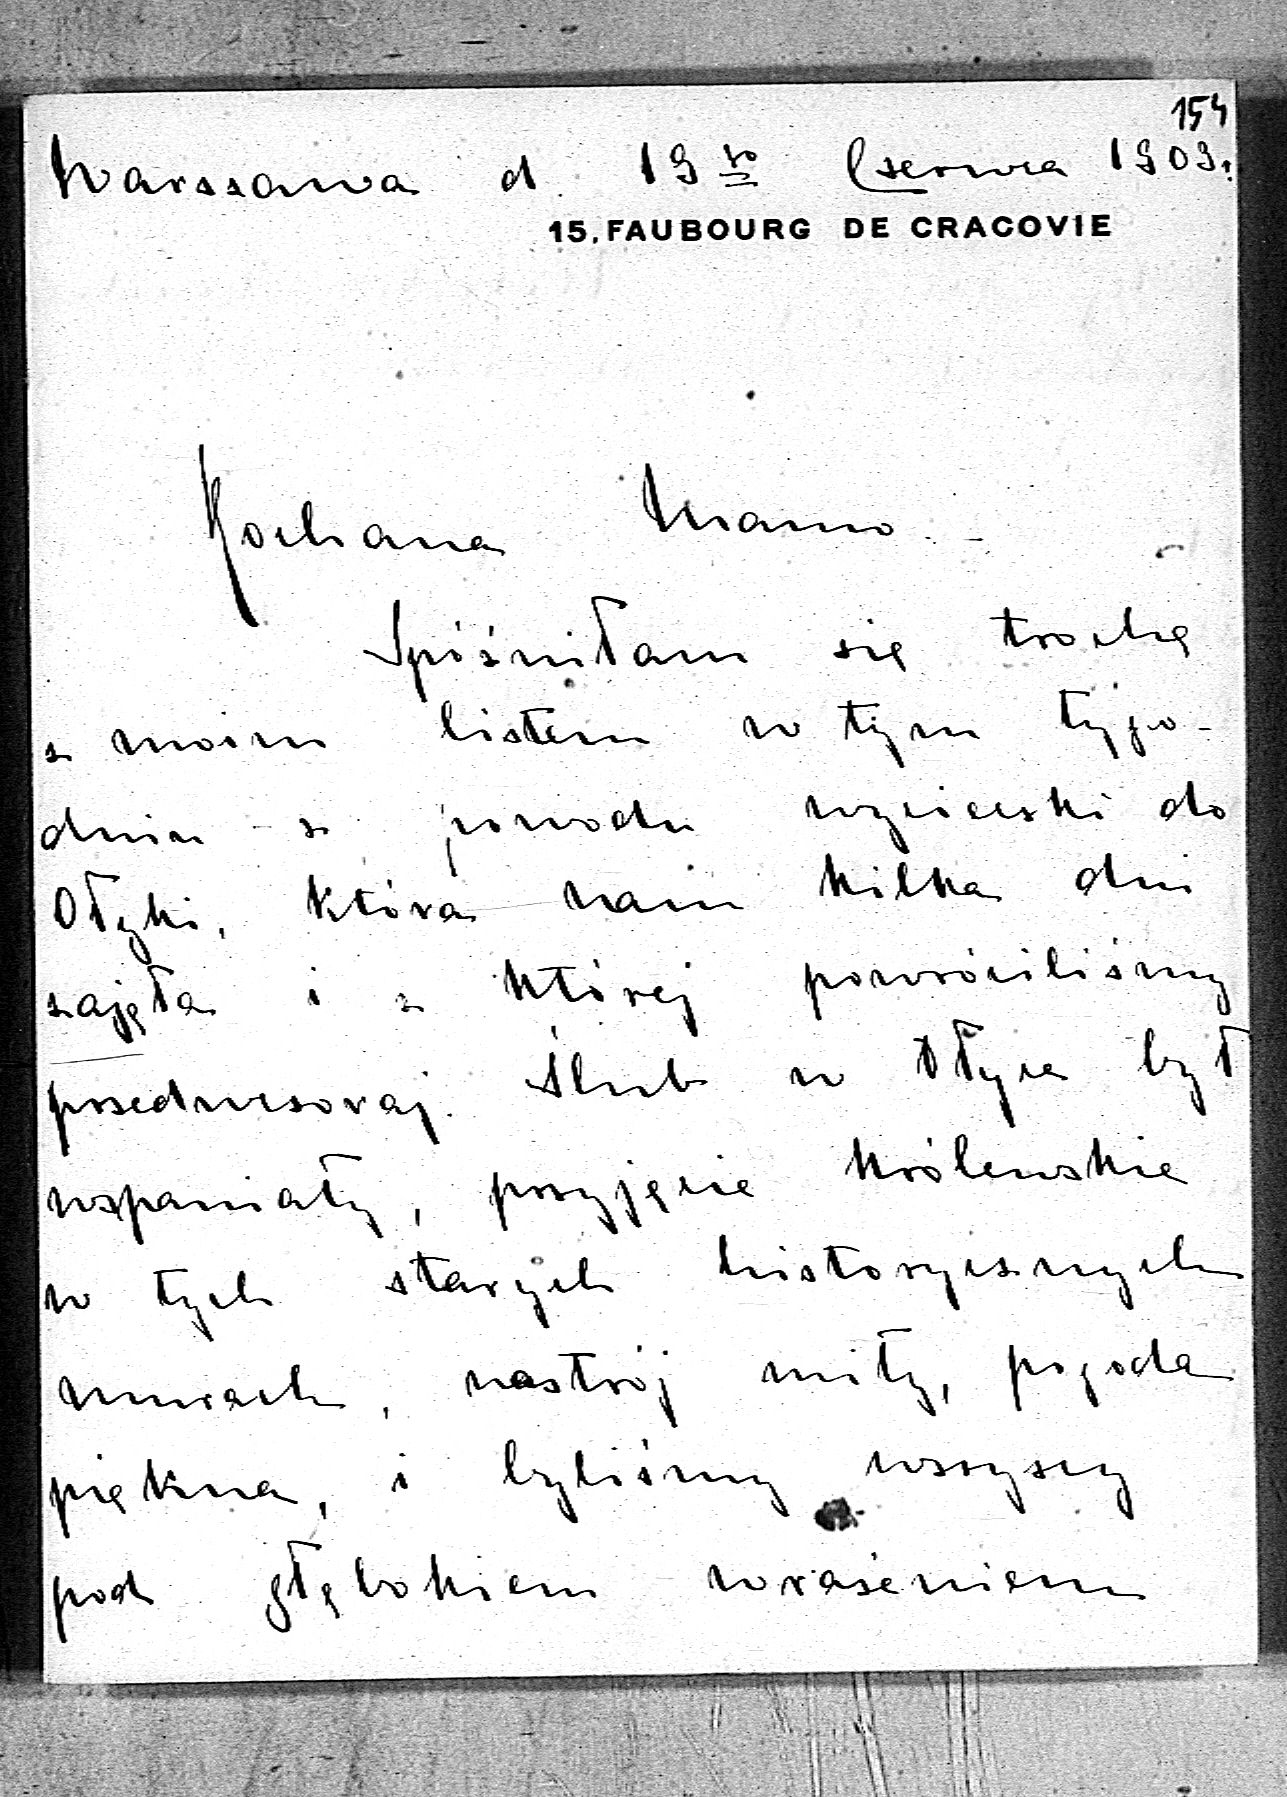 154
Warszawa d. 19go Czerwca 1909r.
15, FAUBOURG DE CRACOVIE
Kochana Mamo. -
Spóźniłam się trochę
z moim listem w tym tygo-
dniu - z powodu wycieczki do
Ołyki, która nam kilka dni
zajęła i z której powróciliśmy
przedwczoraj. Ślub w Ołyce był
wspaniały, przyjęcie królewskie
w tych starych historycznych
murach, nastrój miły, pogoda
piękna, i byliśmy wszyscy
pod głębokiem wrażeniem